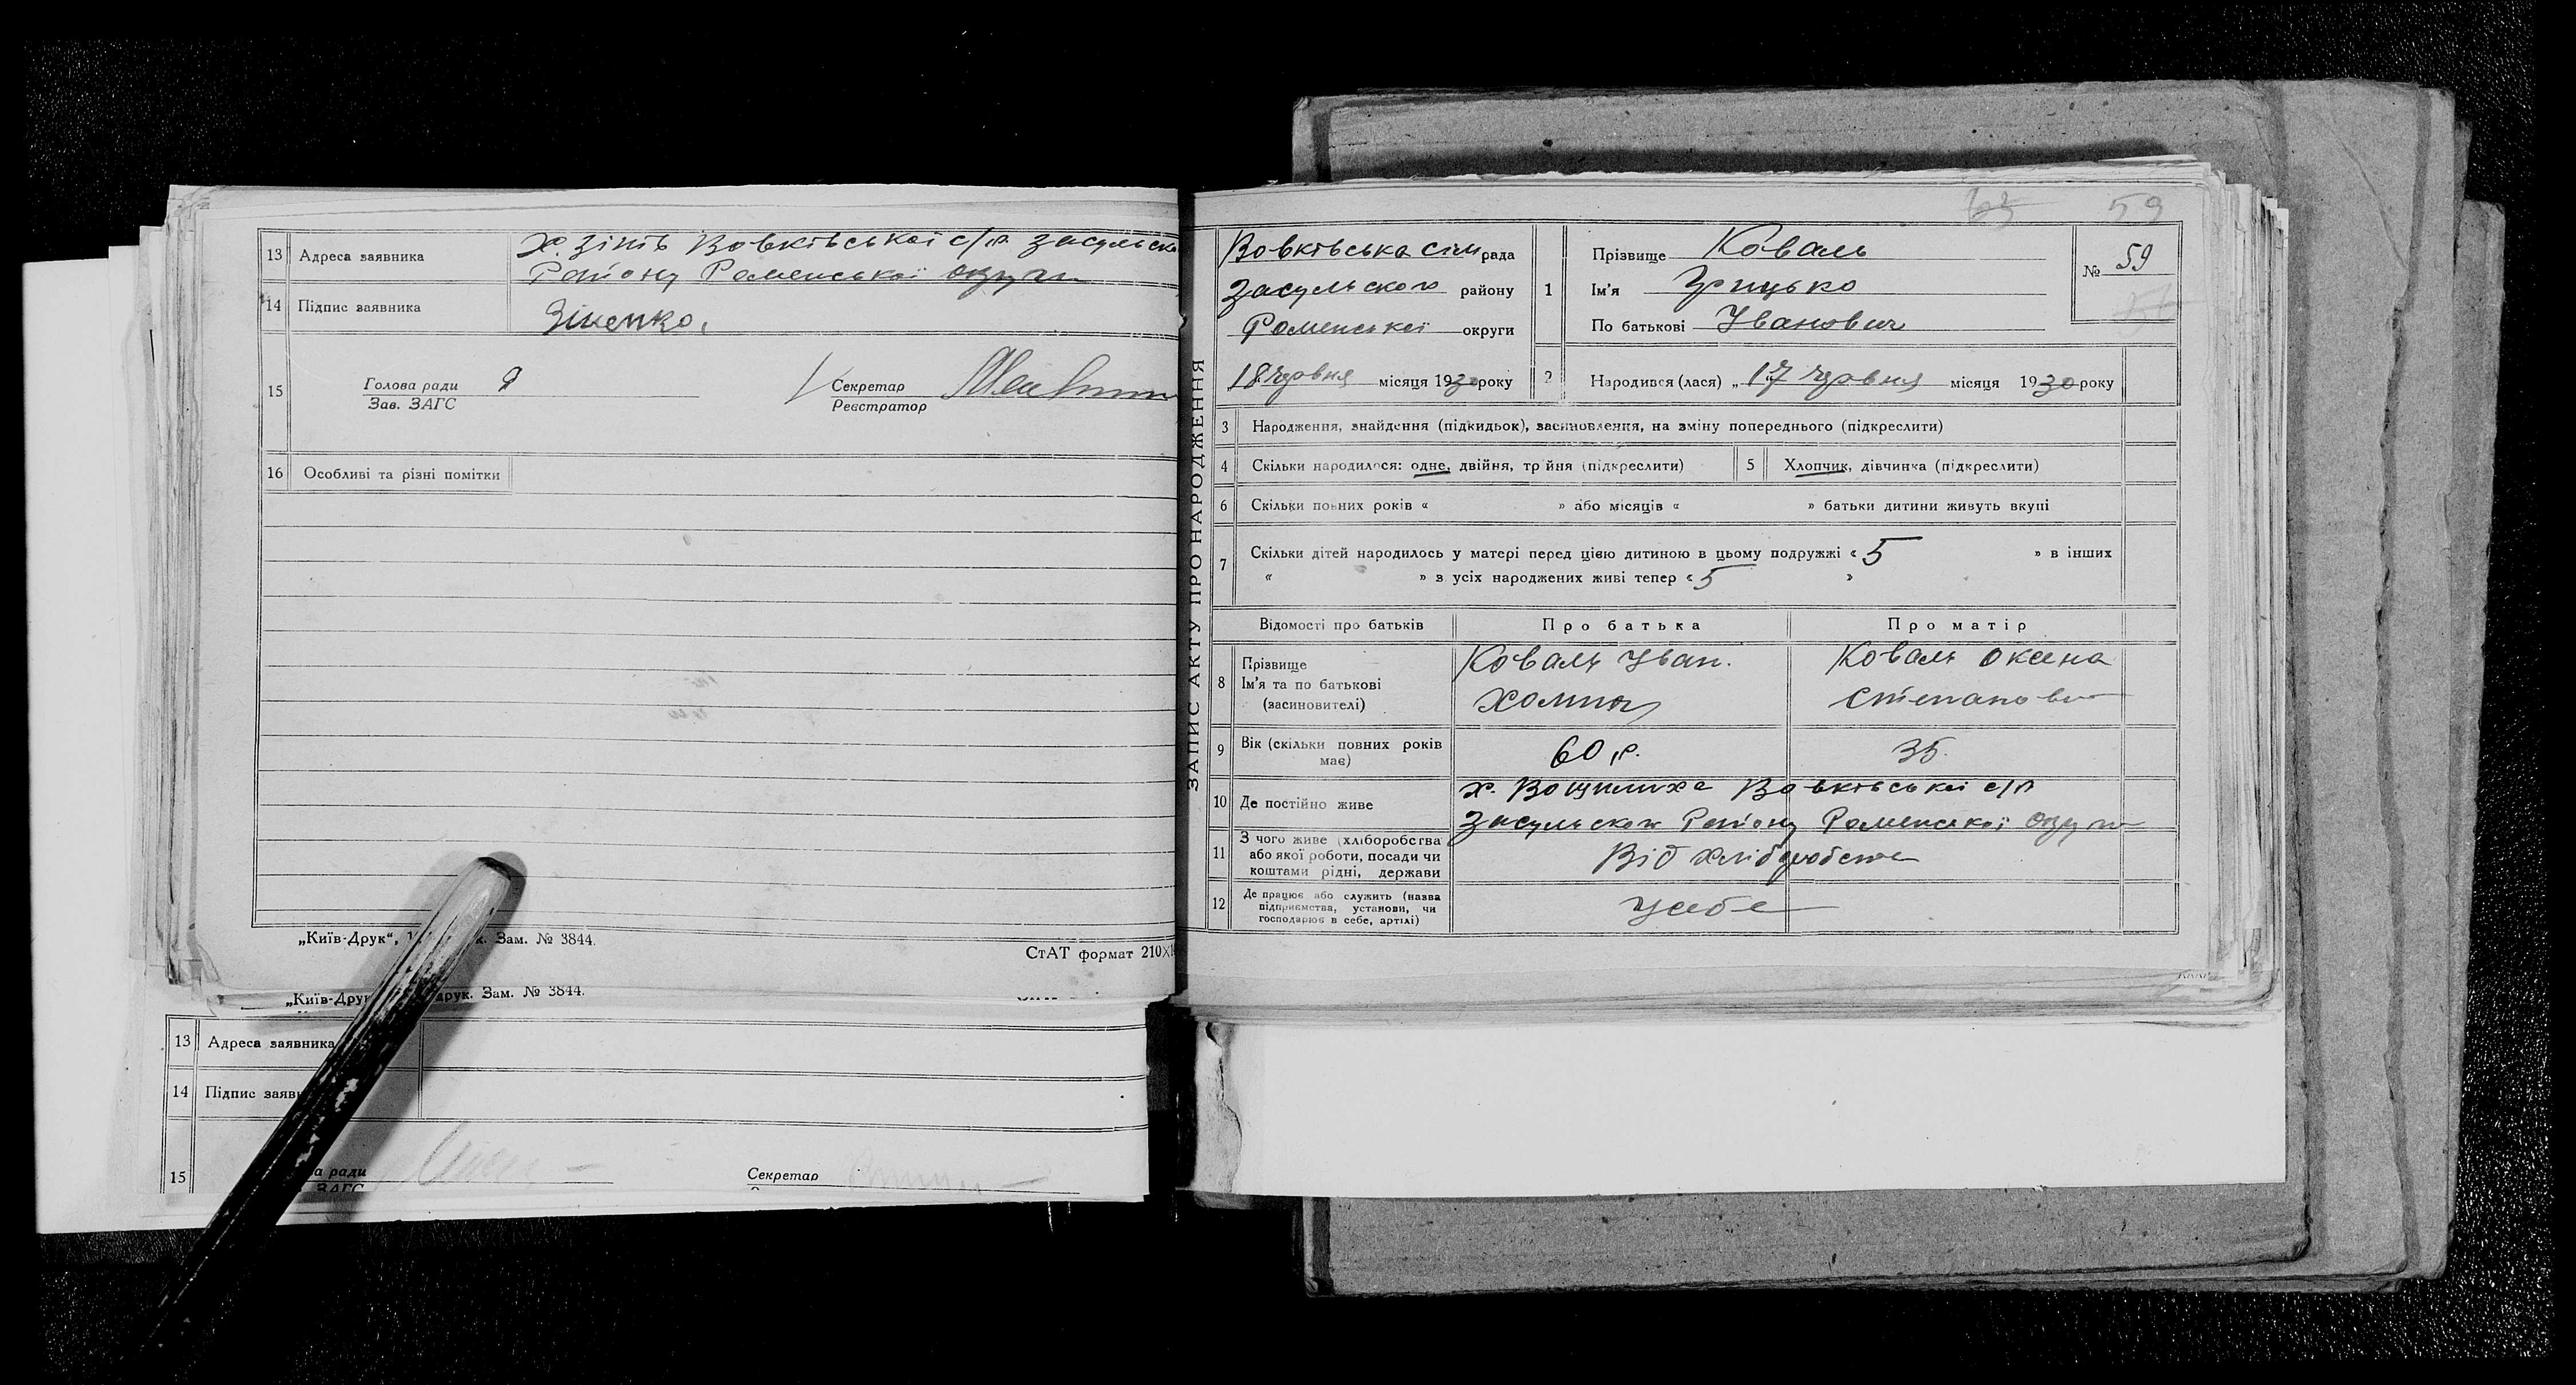 13 Адреса заявника
х. Зінів Вовківської с/р. Засульсько
Району Роменської округи
14 Підпис заявника
Зіненко,
15 Голова ради
Зав. ЗАГС
Секретар
Реєстратор
16 Особливі та різні помітки
„Київ-Друк“, Зам. № 3844.
СтАТ формат 210×
„Київ-Дру друк. Зам. № 3844.
13 Адреса заявника
14 Підпис заяв
15 а ради
ЗАГС
Секретар
59
ЗАПИС АКТУ ПРО НАРОДЖЕННЯ
Вовківська сіль рада
Засульского району
Роменської округи
„18 червня місяця 1930 року
1 Прізвище Коваль
Ім'я Грицько
По батькові Іванович
№ 59
2 Народився (лася) „17 червня місяця 1930 року
3 Народження, знайдення (підкидьок), засиновлення, на зміну попереднього (підкреслити)
4 Скільки народилося: одне, двійня, трійня (підкреслити)
5 Хлопчик, дівчинка (підкреслити)
6 Скільки повних років « » або місяців « » батьки дитини живуть вкупі
7 Скільки дітей народилось у матері перед цією дитиною в цьому подружжі « 5 » в інших
« » з усіх народжених живі тепер « 5 »
Відомості про батьків
Про батька
Про матір
8 Прізвище
Ім'я та по батькові
(засиновителі)
Коваль Іван.
Хомич
Коваль Оксана
Степанов
9 Вік (скільки повних років
має)
60 р.
35.
10 Де постійно живе
х. Вощилиха Вовківської с/р
Засульского Району Роменської округи
11 З чого живе (хліборобства
або якої роботи, посади чи
коштами рідні, держави
Від хліборобства
12 Де працює або служить (назва
підприємства, установи, чи
господарює в себе, артілі)
У себе